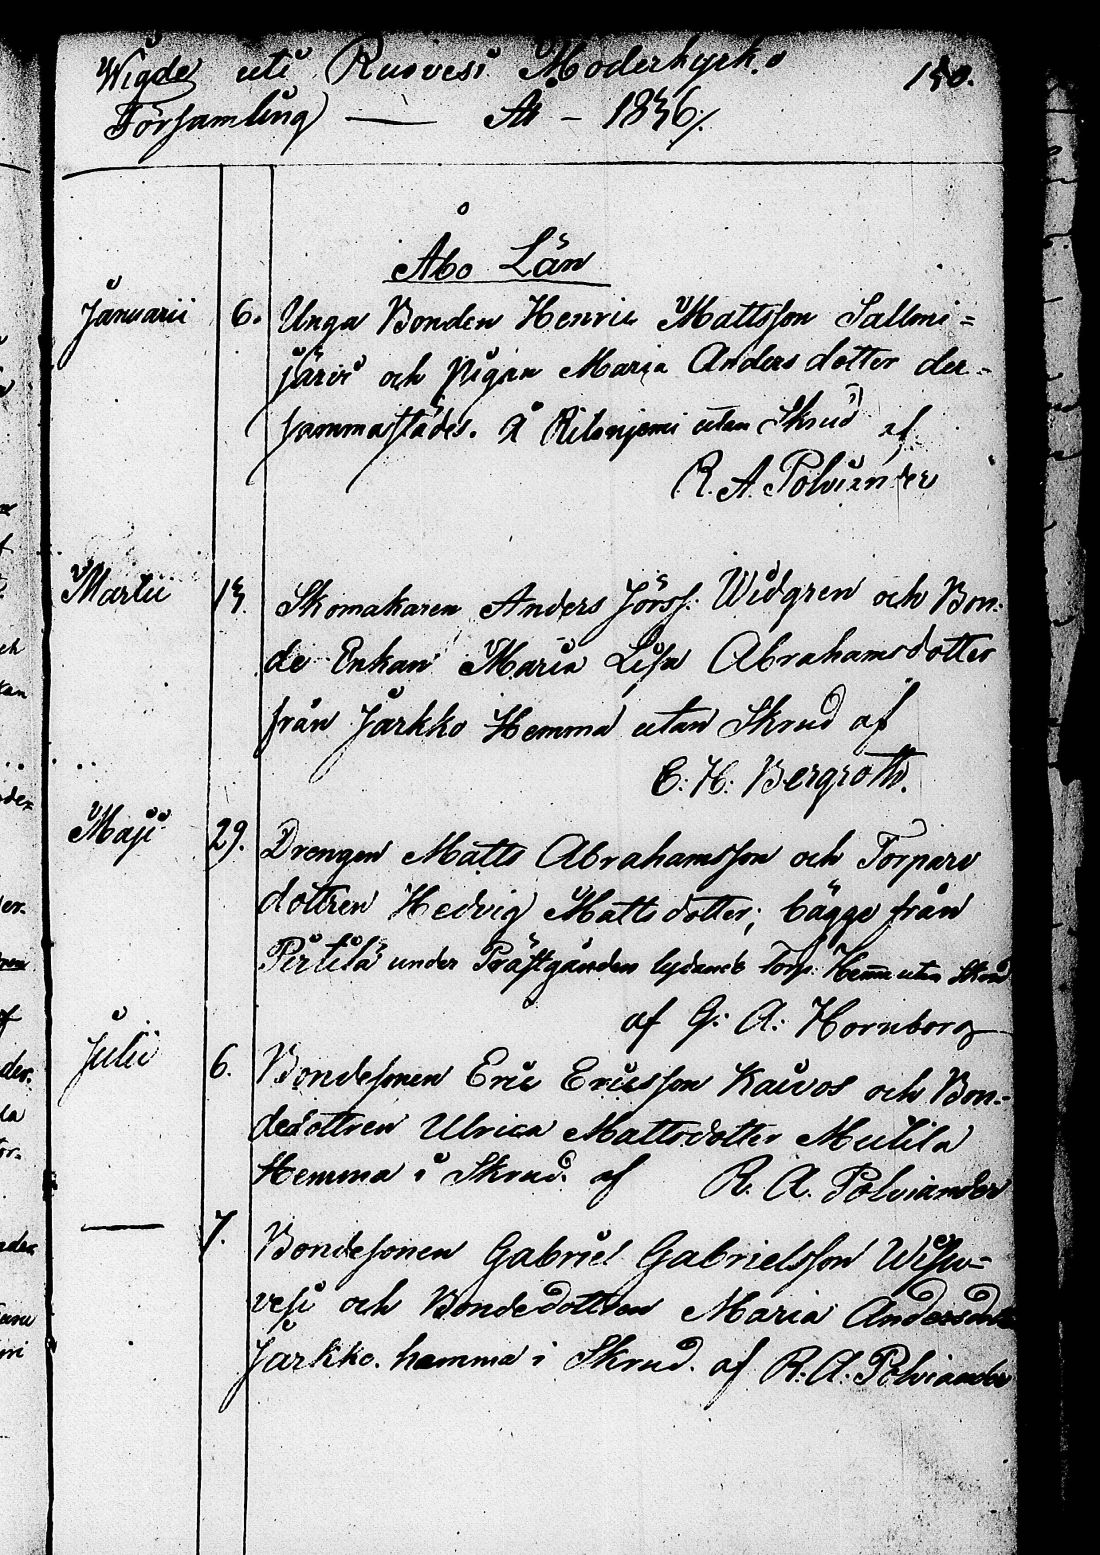 Wigde uti Ruovesi Moderkyrk.o 150.
Församling — År – 1836.
Åbo Län
Januarii 6. Unga Bonden Henric Mattsson Salloni=
järvi och Pigan Maria Andersdotter der=
sammastädes. å Ritoniemi utan Skrud af
R. A. Polviander
Martii 13. Skomakaren Anders Jörsf: Widgren och Bon:
de Enkan Maria Lisa Abrahamsdotter
från Jarkko Hemma utan Skrud af
C: H: Bergroth.
Maji 29. Drengen Matts Abrahamsson och Torpare
dottren Hedvig Mattsdotter; bägge från
Pertilä under Prästgården lydande Torp. Hemma utan Skrud
af G: A: Hornborg
Julii 6. Bondesonen Eric Ericsson Kaivos och Bon=
dedottren Ulrica Mattsdotter Mutila
Hemma i Skrud. af R. A. Polviander
— 7. Bondesonen Gabriel Gabrielsson Wisu=
vesi och Bondedottren Maria Andersdr
Jarkko. hemma i Skrud. af R: A: Polviander